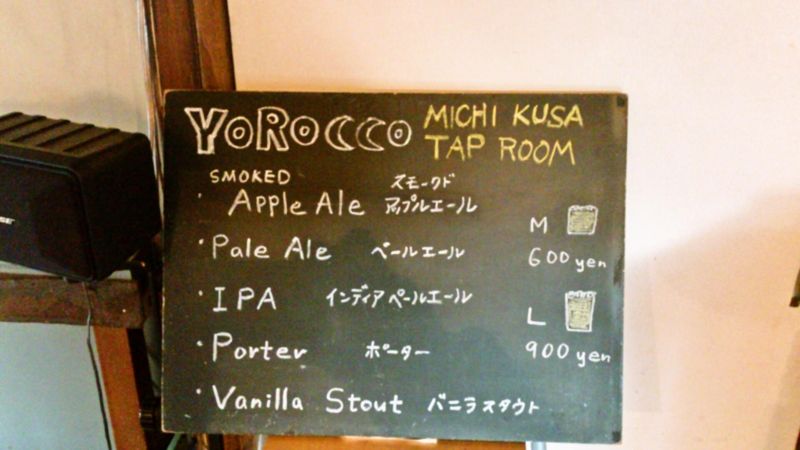 YOROCCO MICHI KUSA
TAP ROOM
SMOKED スモークド
・Apple Ale アップルエール
M
・Pale Ale ペールエール
600 yen
・IPA インディアペールエール
L
・Porter ポーター
900 yen
・Vanilla Stout バニラスタウト